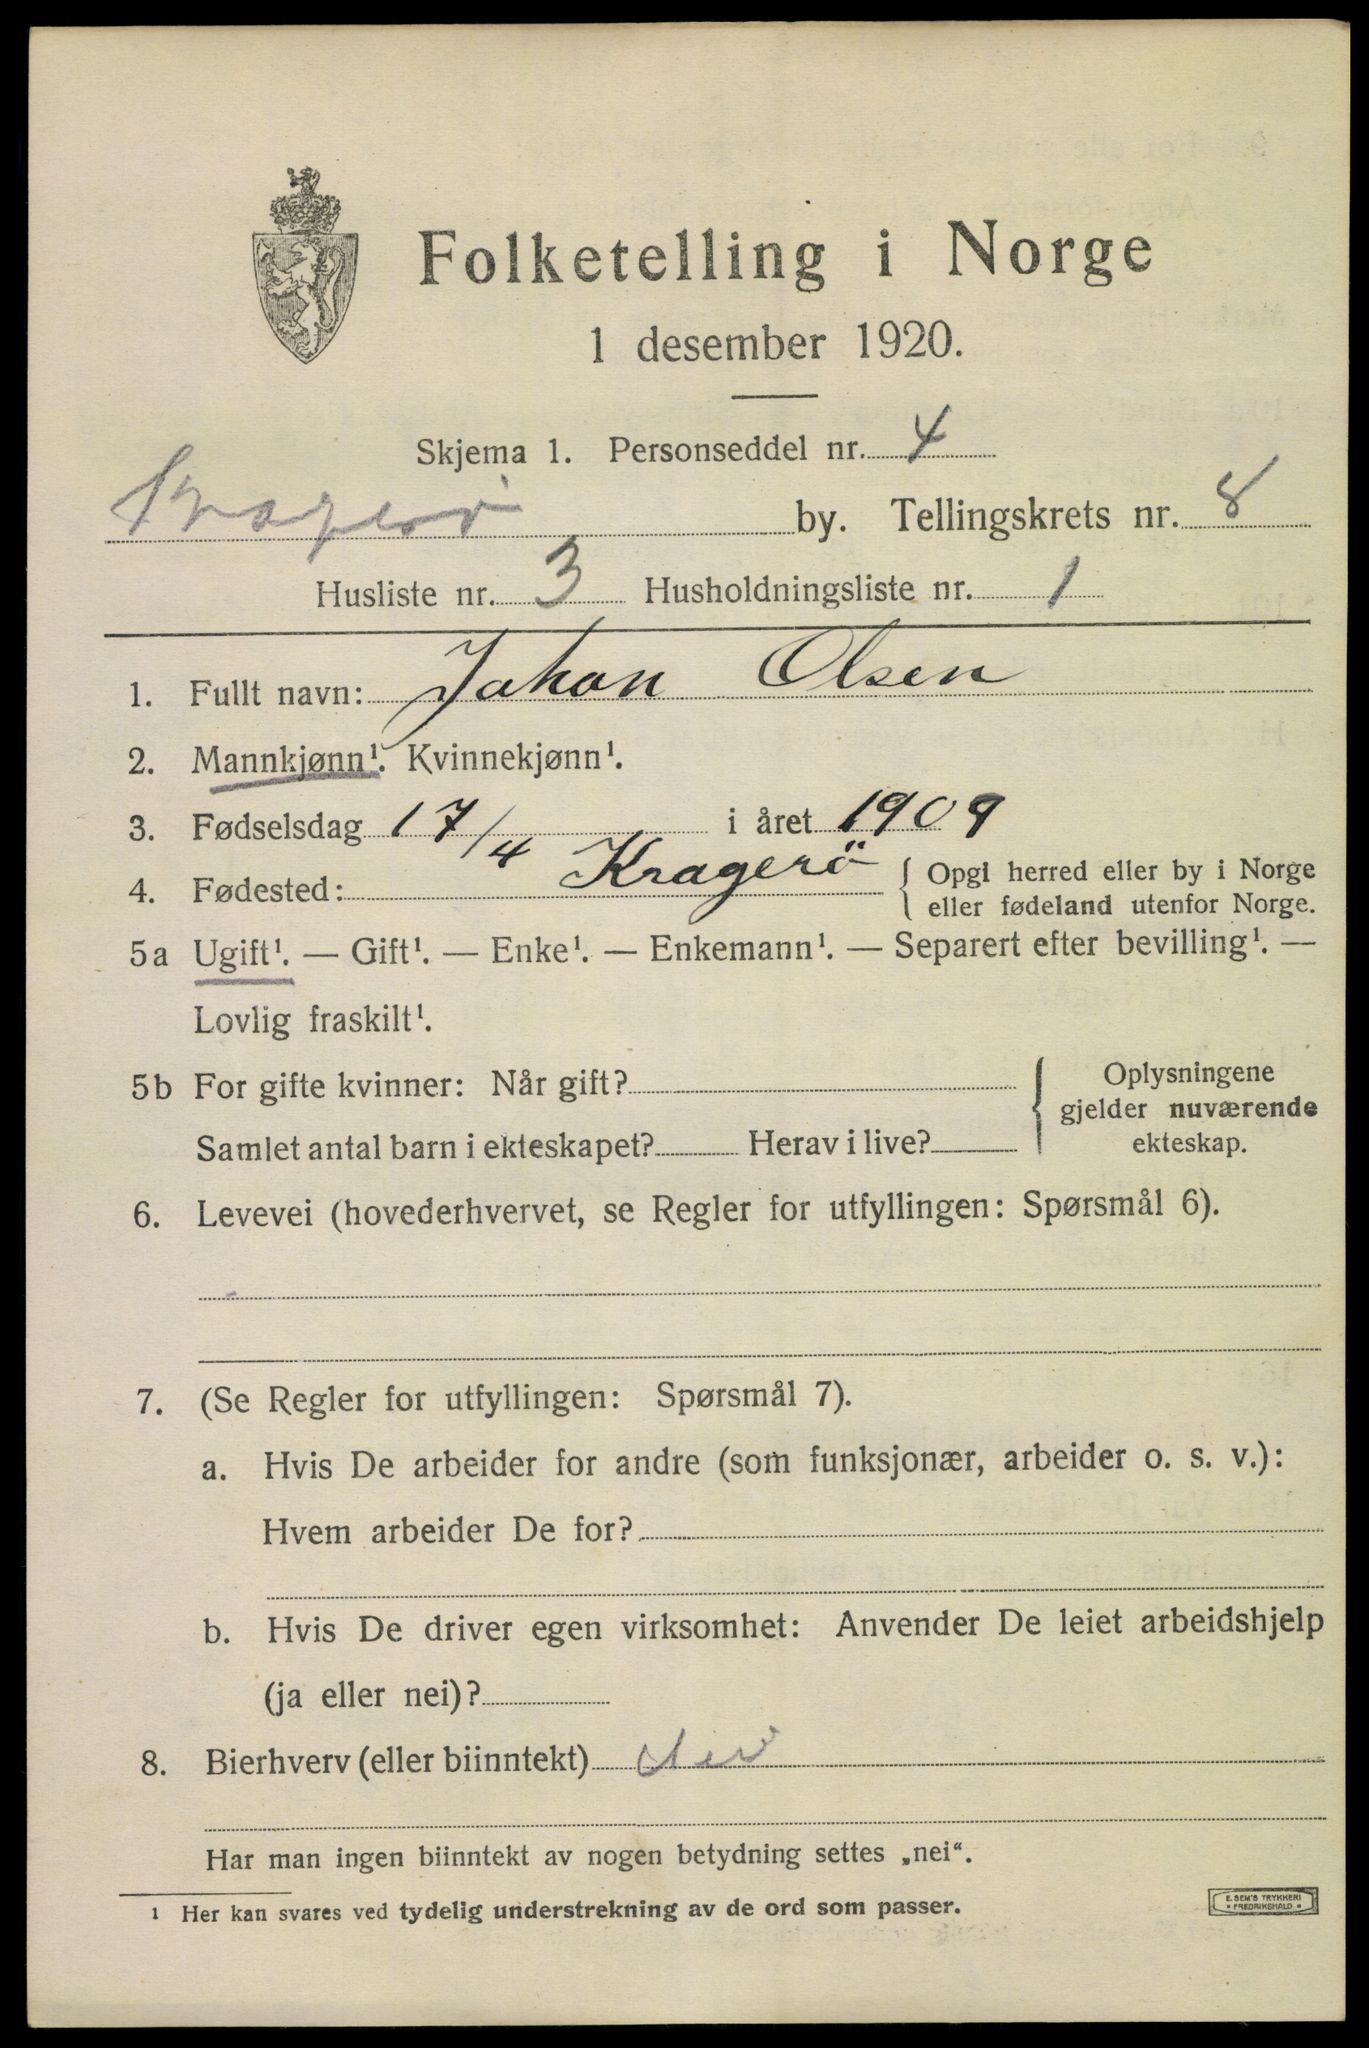 Folketelling i Norge
1 desember 1920.
Skjema 1. Personseddel nr. 4
Kragerø by. Tellingskrets nr. 8
Husliste nr. 3 Husholdningsliste nr. 1
1. Fullt navn: Johan Olsen
2. Mannkjønn¹. Kvinnekjønn¹.
3. Fødselsdag 17/4 i året 1909
4. Fødested: Kragerö { Opgi herred eller by i Norge
eller fødeland utenfor Norge.
5a Ugift¹. — Gift¹. — Enke¹. — Enkemann¹. — Separert efter bevilling¹. —
Lovlig fraskilt¹.
5b For gifte kvinner: Når gift?
Samlet antal barn i ekteskapet? Herav i live?
Oplysningene
gjelder nuværende
ekteskap.
6. Levevei (hovederhvervet, se Regler for utfyllingen: Spørsmål 6).
-
7. (Se Regler for utfyllingen: Spørsmål 7).
a. Hvis De arbeider for andre (som funksjonær, arbeider o. s. v.):
Hvem arbeider De for?
b. Hvis De driver egen virksomhet: Anvender De leiet arbeidshjelp
(ja eller nei)?
8. Bierhverv (eller biinntekt) Nei
Har man ingen biinntekt av nogen betydning settes „nei“.
¹ Her kan svares ved tydelig understrekning av de ord som passer.
E. SEM'S TRYKKERI
* FREDRIKSHALD *